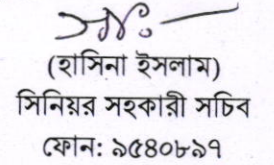 (হাসিনা ইসলাম)
সিনিয়র সহকারী সচিব
ফোন: ৯৫৪০৮৯৭